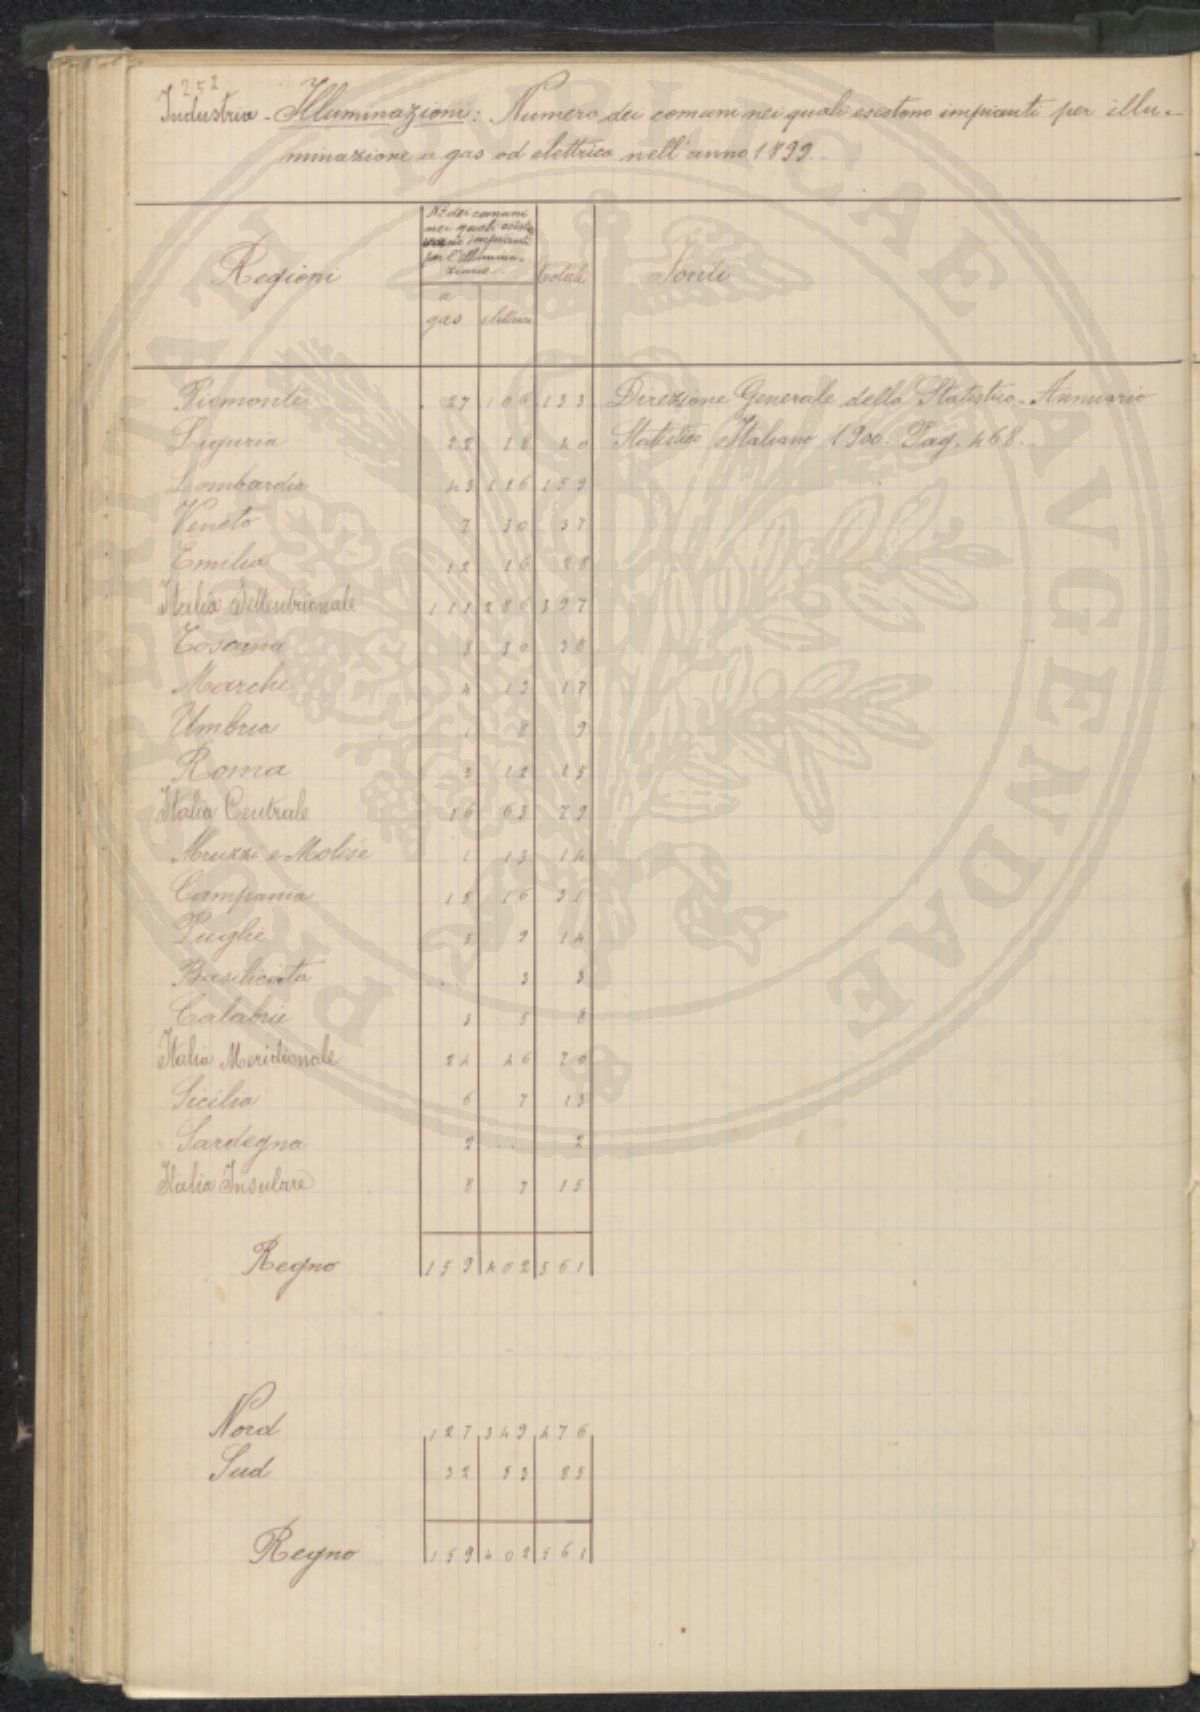 252
Industria - Illuminazioni: Numero dei comuni nei quali esistono impianti per illu-
minazione a gas od elettrica nell'anno 1899.
Regioni
No dei comuni
nei quali esiste
vano impianti
per l'illumina-
zione
a
gas elettrica
Totale
Fonti
Piemonte 27 106 133 Direzione Generale della Statistica - Annuario
Liguria 22 18 40 Statistico Italiano 1900. Pag. 468.
Lombardia 43 116 159
Veneto 7 30 37
Emilia 12 16 28
Italia Settentrionale 111 286 397
Toscana 8 30 38
Marche 4 13 17
Umbria 1 8 9
Roma 3 12 15
Italia Centrale 16 63 79
Abruzzi e Molise 1 13 14
Campania 15 16 31
Puglie 5 9 14
Basilicata .. 3 3
Calabrie 3 5 8
Italia Meridionale 24 46 70
Sicilia 6 7 13
Sardegna 2 .. 2
Italia Insulare 8 7 15
Regno 159 402 561
Nord 127 349 476
Sud 32 53 85
Regno 159 402 561